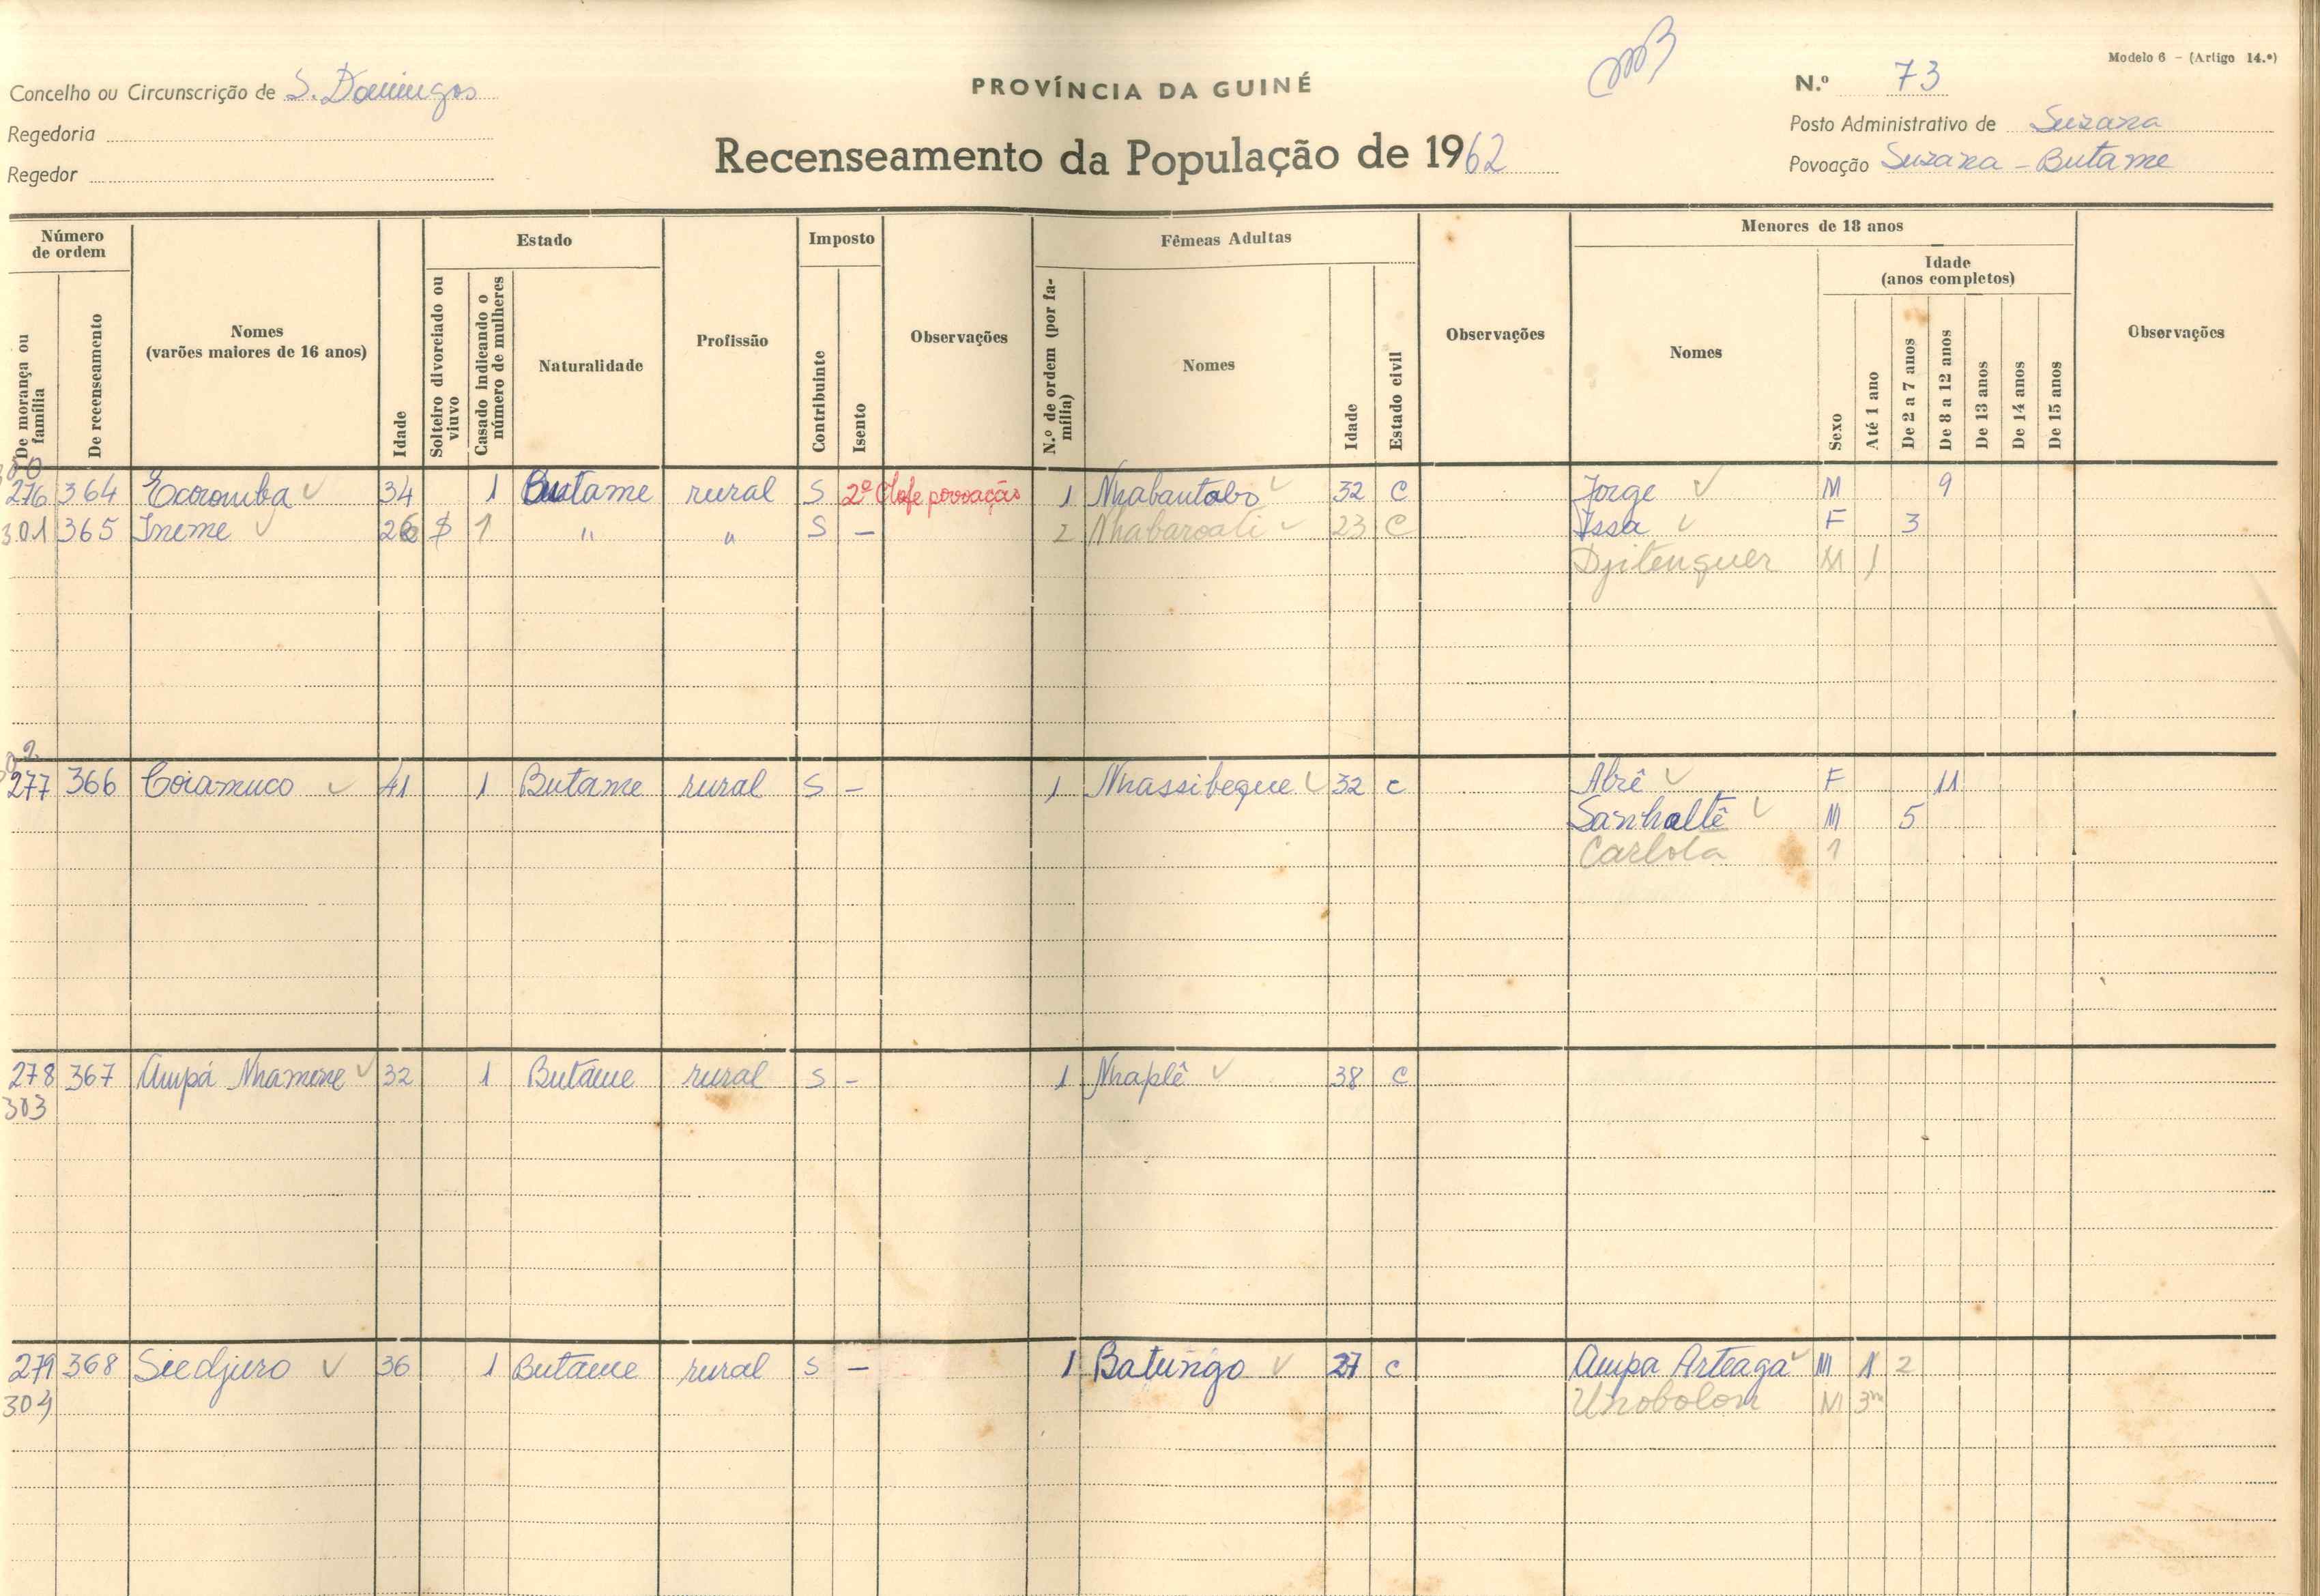 Modelo 6 – (Artigo 14.º)
Concelho ou Circunscrição de S. Domingos
PROVÍNCIA DA GUINÉ
N.º 73
Regedoria
Posto Administrativo de Suzana
Regedor
Recenseamento da População de 1962
Povoação Suzana - Butame
Número de ordem
Estado
Imposto
Fêmeas Adultas
Menores de 18 anos
Idade (anos completos)
De morança ou família
De recenseamento
Nomes (varões maiores de 16 anos)
Idade
Solteiro divorciado ou viuvo
Casado indicando o número de mulheres
Naturalidade
Profissão
Contribuinte
Isento
Observações
N.º de ordem (por família)
Nomes
Idade
Estado civil
Observações
Nomes
Sexo
Até 1 ano
De 2 a 7 anos
De 8 a 12 anos
De 13 anos
De 14 anos
De 15 anos
Observações
276 364 Ecoromba 34 1 Butame rural S 2º Chefe povoação 1 Nhabantabo 32 C Jorge M 9
301 365 Ineme 26 $ 1 " " S - 2 Nhabaroati 23 C Issa F 3
Djitenquer M 1
277 366 Coiamuco 41 1 Butame rural S - 1 Nhassibeque 32 C Abrê F 11
Sanhaltê M 5
Carlota 1
278 367 Ampá Nhamene 32 1 Butame rural S - 1 Nhaplê 38 C
303
279 368 Siedjuro 36 1 Butame rural S - 1 Batungo 27 C Ampa Arteaga M 1 2
304 Unobolon M 3m